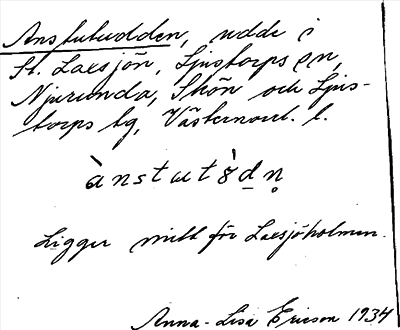 Anstutudden, udde i
St. Laxsjön, Ljustorps sn,
Njurunda, Skön och Ljus-
torps tg, Västernorrl. l.
ànstutὸ̀dn̥
Ligger mitt för Laxsjöholmen.
Anna-Lisa Ericson 1934